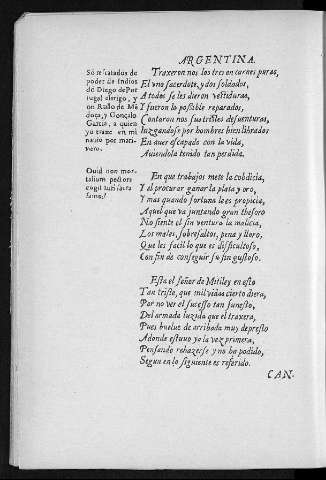 ARGENTINA.
Sõ rescatados de
poder de Indios
dõ Diego de Por
tugal clerigo, y
on Ruño de Mẽ
doça, y Gonçalo
Garcia, a quien
yo traxe en mi
nauio por mari-
nero.
Quid non mor-
talium pectora
cogit auri sacra
fames?
Traxeron nos los tres en carnes puras,
El vno sacerdote, y dos soldados,
A todos se les dieron vestiduras,
Y fueron lo possible reparados,
Contaron nos sus tristes desuenturas,
Iuzgandose por hombres bien librados
En auer escapado con la vida,
Auiendola tenido tan perdida.
En que trabajos mete la cobdicia,
Y el procurar ganar la plata y oro,
Y mas quando fortuna le es propicia,
Aquel que va juntando gran thesoro
No siente el sin ventura la malicia,
Los males, sobresaltos, pena y lloro,
Que les facil lo que es dificultoso,
Con fin de conseguir su fin gustoso.
Esta el señor de Mitiley en esto
Tan triste, que mil vidas cierto diera,
Por no ver el sucesso tan funesto,
Del armada luzida que el traxera,
Pues buelue de arribada muy depresto
Adonde estuuo ya la vez primera,
Pensando rehazerse y no ha podido,
Segun en lo siguiente es referido.
CAN-